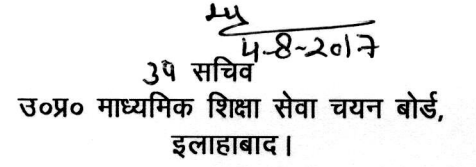 4-8-2017
उप सचिव
उ०प्र० माध्यमिक शिक्षा सेवा चयन बोर्ड,
इलाहाबाद।